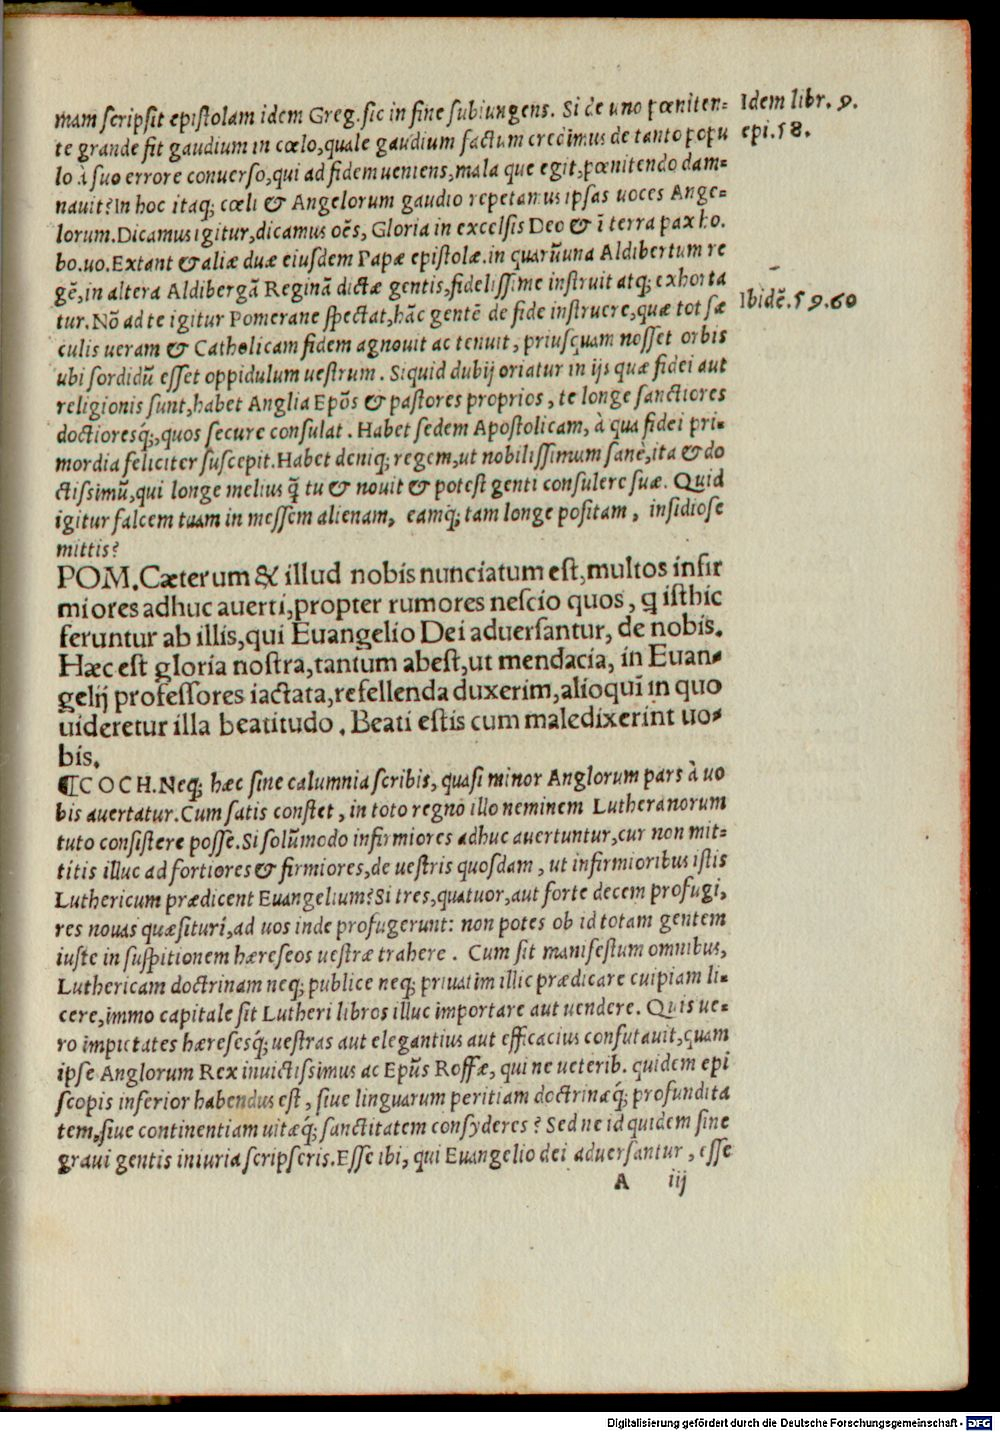 mam scripsit epistolam idem Greg. sic in fine subiungens. Si de uno pœniten=
te grande fit gaudium in cœlo, quale gaudium factum credimus de tanto popu
lo à suo errore conuerso, qui ad fidem ueniens, mala que egit, pœnitendo dam=
nauit? In hoc itaq; cœli & Angelorum gaudio repetamus ipsas uoces Ange=
lorum. Dicamus igitur, dicamus oẽs, Gloria in excelsis Deo & ĩ terra pax ho.
bo. uo. Extant & aliæ duæ eiusdem Papæ epistolæ. in quarũ una Aldibertum re
gẽ, in altera Aldibergã Reginã dictæ gentis, fidelissime instruit atq; exhorta
tur. Nõ ad te igitur Pomerane spectat, hãc gentẽ de fide instruere, quæ tot sæ
culis ueram & Catholicam fidem agnouit ac tenuit, priusquam nosset orbis
ubi sordidũ esset oppidulum uestrum. Siquid dubij oriatur in ijs quæ fidei aut
religionis sunt, habet Anglia Ep̃os & pastores proprios, te longe sanctiores
doctioresq́;, quos secure consulat. Habet sedem Apostolicam, à qua fidei pri=
mordia feliciter suscepit. Habet deniq; regem, ut nobilissimum sanè, ita & do
ctissimũ, qui longe melius q̃ tu & nouit & potest genti consulere suæ. Quid
igitur falcem tuam in messem alienam, eamq́; tam longe positam, insidiose
mittis?
Idem libr. 9.
epi. 58.
Ibidẽ. 59. 60
POM. Cæterum & illud nobis nunciatum est, multos infir
miores adhuc auerti, propter rumores nescio quos, q isthic
feruntur ab illis, qui Euangelio Dei aduersantur, de nobis.
Hæc est gloria nostra, tantum abest, ut mendacia, in Euan=
gelij professores iactata, refellenda duxerim, alioqui in quo
uideretur illa beatitudo. Beati estis cum maledixerint uo=
bis.
¶COCH. Neq; hæc sine calumnia scribis, quasi minor Anglorum pars à uo
bis auertatur. Cum satis constet, in toto regno illo neminem Lutheranorum
tuto consistere posse. Si solũmodo infirmiores adhuc auertuntur, cur non mit=
titis illuc ad fortiores & firmiores, de uestris quosdam, ut infirmioribus istis
Luthericum prædicent Euangelium? Si tres, quatuor, aut forte decem profugi,
res nouas quæsituri, ad uos inde profugerunt: non potes ob id totam gentem
iuste in suspitionem hæreseos uestræ trahere. Cum sit manifestum omnibus,
Luthericam doctrinam neq; publice neq; priuatim illic prædicare cuipiam li=
cere, immo capitale sit Lutheri libros illuc importare aut uendere. Quis ue=
ro impietates hæresesq́; uestras aut elegantius aut efficacius confutauit, quam
ipse Anglorum Rex inuictissimus ac Ep̃us Roffæ, qui neueterib. quidem epi
scopis inferior habendus est, siue linguarum peritiam doctrinæq́; profundita
tem, siue continentiam uitæq́; sanctitatem consyderes? Sed ne id quidem sine
graui gentis iniuria scripseris. Esse ibi, qui Euangelio dei aduersantur, esse
A iij
Digitalisierung gefördert durch die Deutsche Forschungsgemeinschaft - DFG